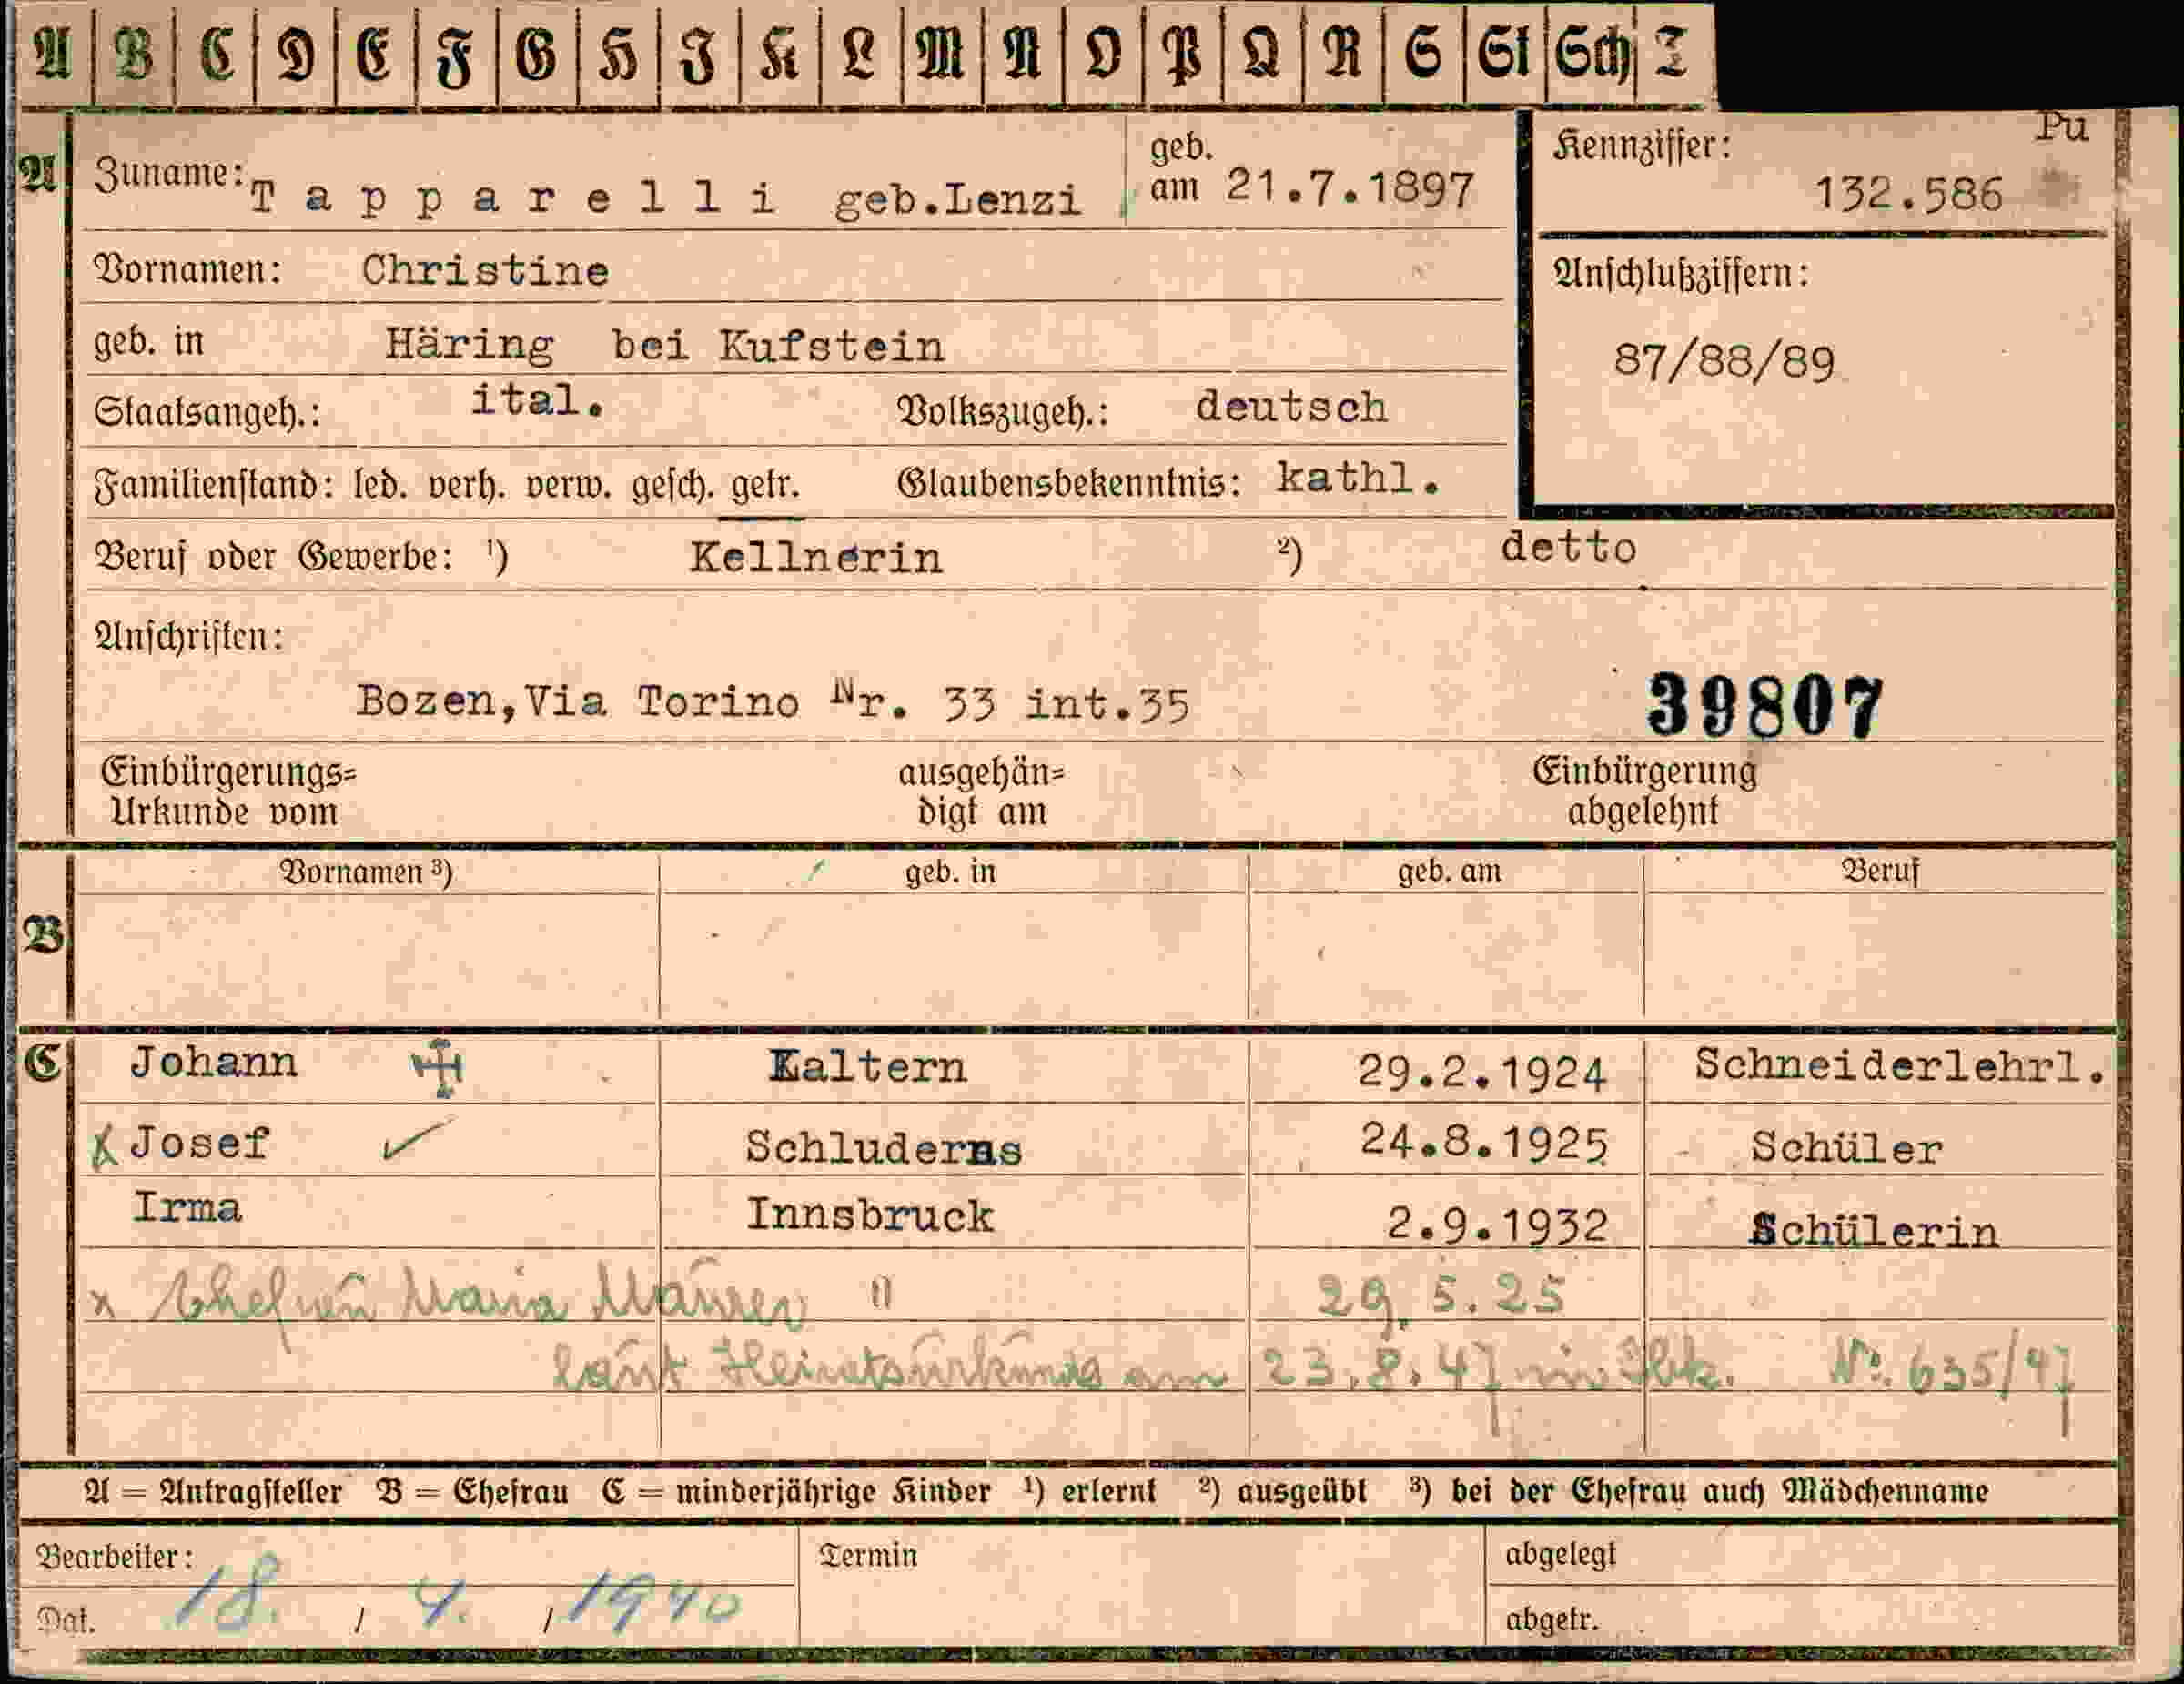 A B C D E F G H I K L M N O P Q R S St Sch T
Pu
A
Zuname: Tapparelli geb.Lenzi
geb. am 21.7.1897
Kennziffer:
132.586
Vornamen: Christine
Anschlußziffern:
geb. in Häring bei Kufstein
87/88/89
Staatsangeh.: ital. Volkszugeh.: deutsch
Familienstand: led. verh. verw. gesch. getr. Glaubensbekenntnis: kathl.
Beruf oder Gewerbe: ¹) Kellnerin ²) detto
Anschriften:
Bozen,Via Torino Nr. 33 int.35 39807
Einbürgerungs= ausgehän= Einbürgerung
Urkunde vom digt am abgelehnt
Vornamen ³) geb. in geb. am Beruf
B
C Johann Kaltern 29.2.1924 Schneiderlehrl.
x Josef ✓ Schluderns 24.8.1925 Schüler
Irma Innsbruck 2.9.1932 Schülerin
x Ehefrau Maria Maurer " 29.5.25
laut Heiratsurkunde am 23.8.47 in No. 635/47
A = Antragsteller B = Ehefrau C = minderjährige Kinder ¹) erlernt ²) ausgeübt ³) bei der Ehefrau auch Mädchenname
Bearbeiter: Termin abgelegt
Dat. 18. / 4. / 1940 abgetr.